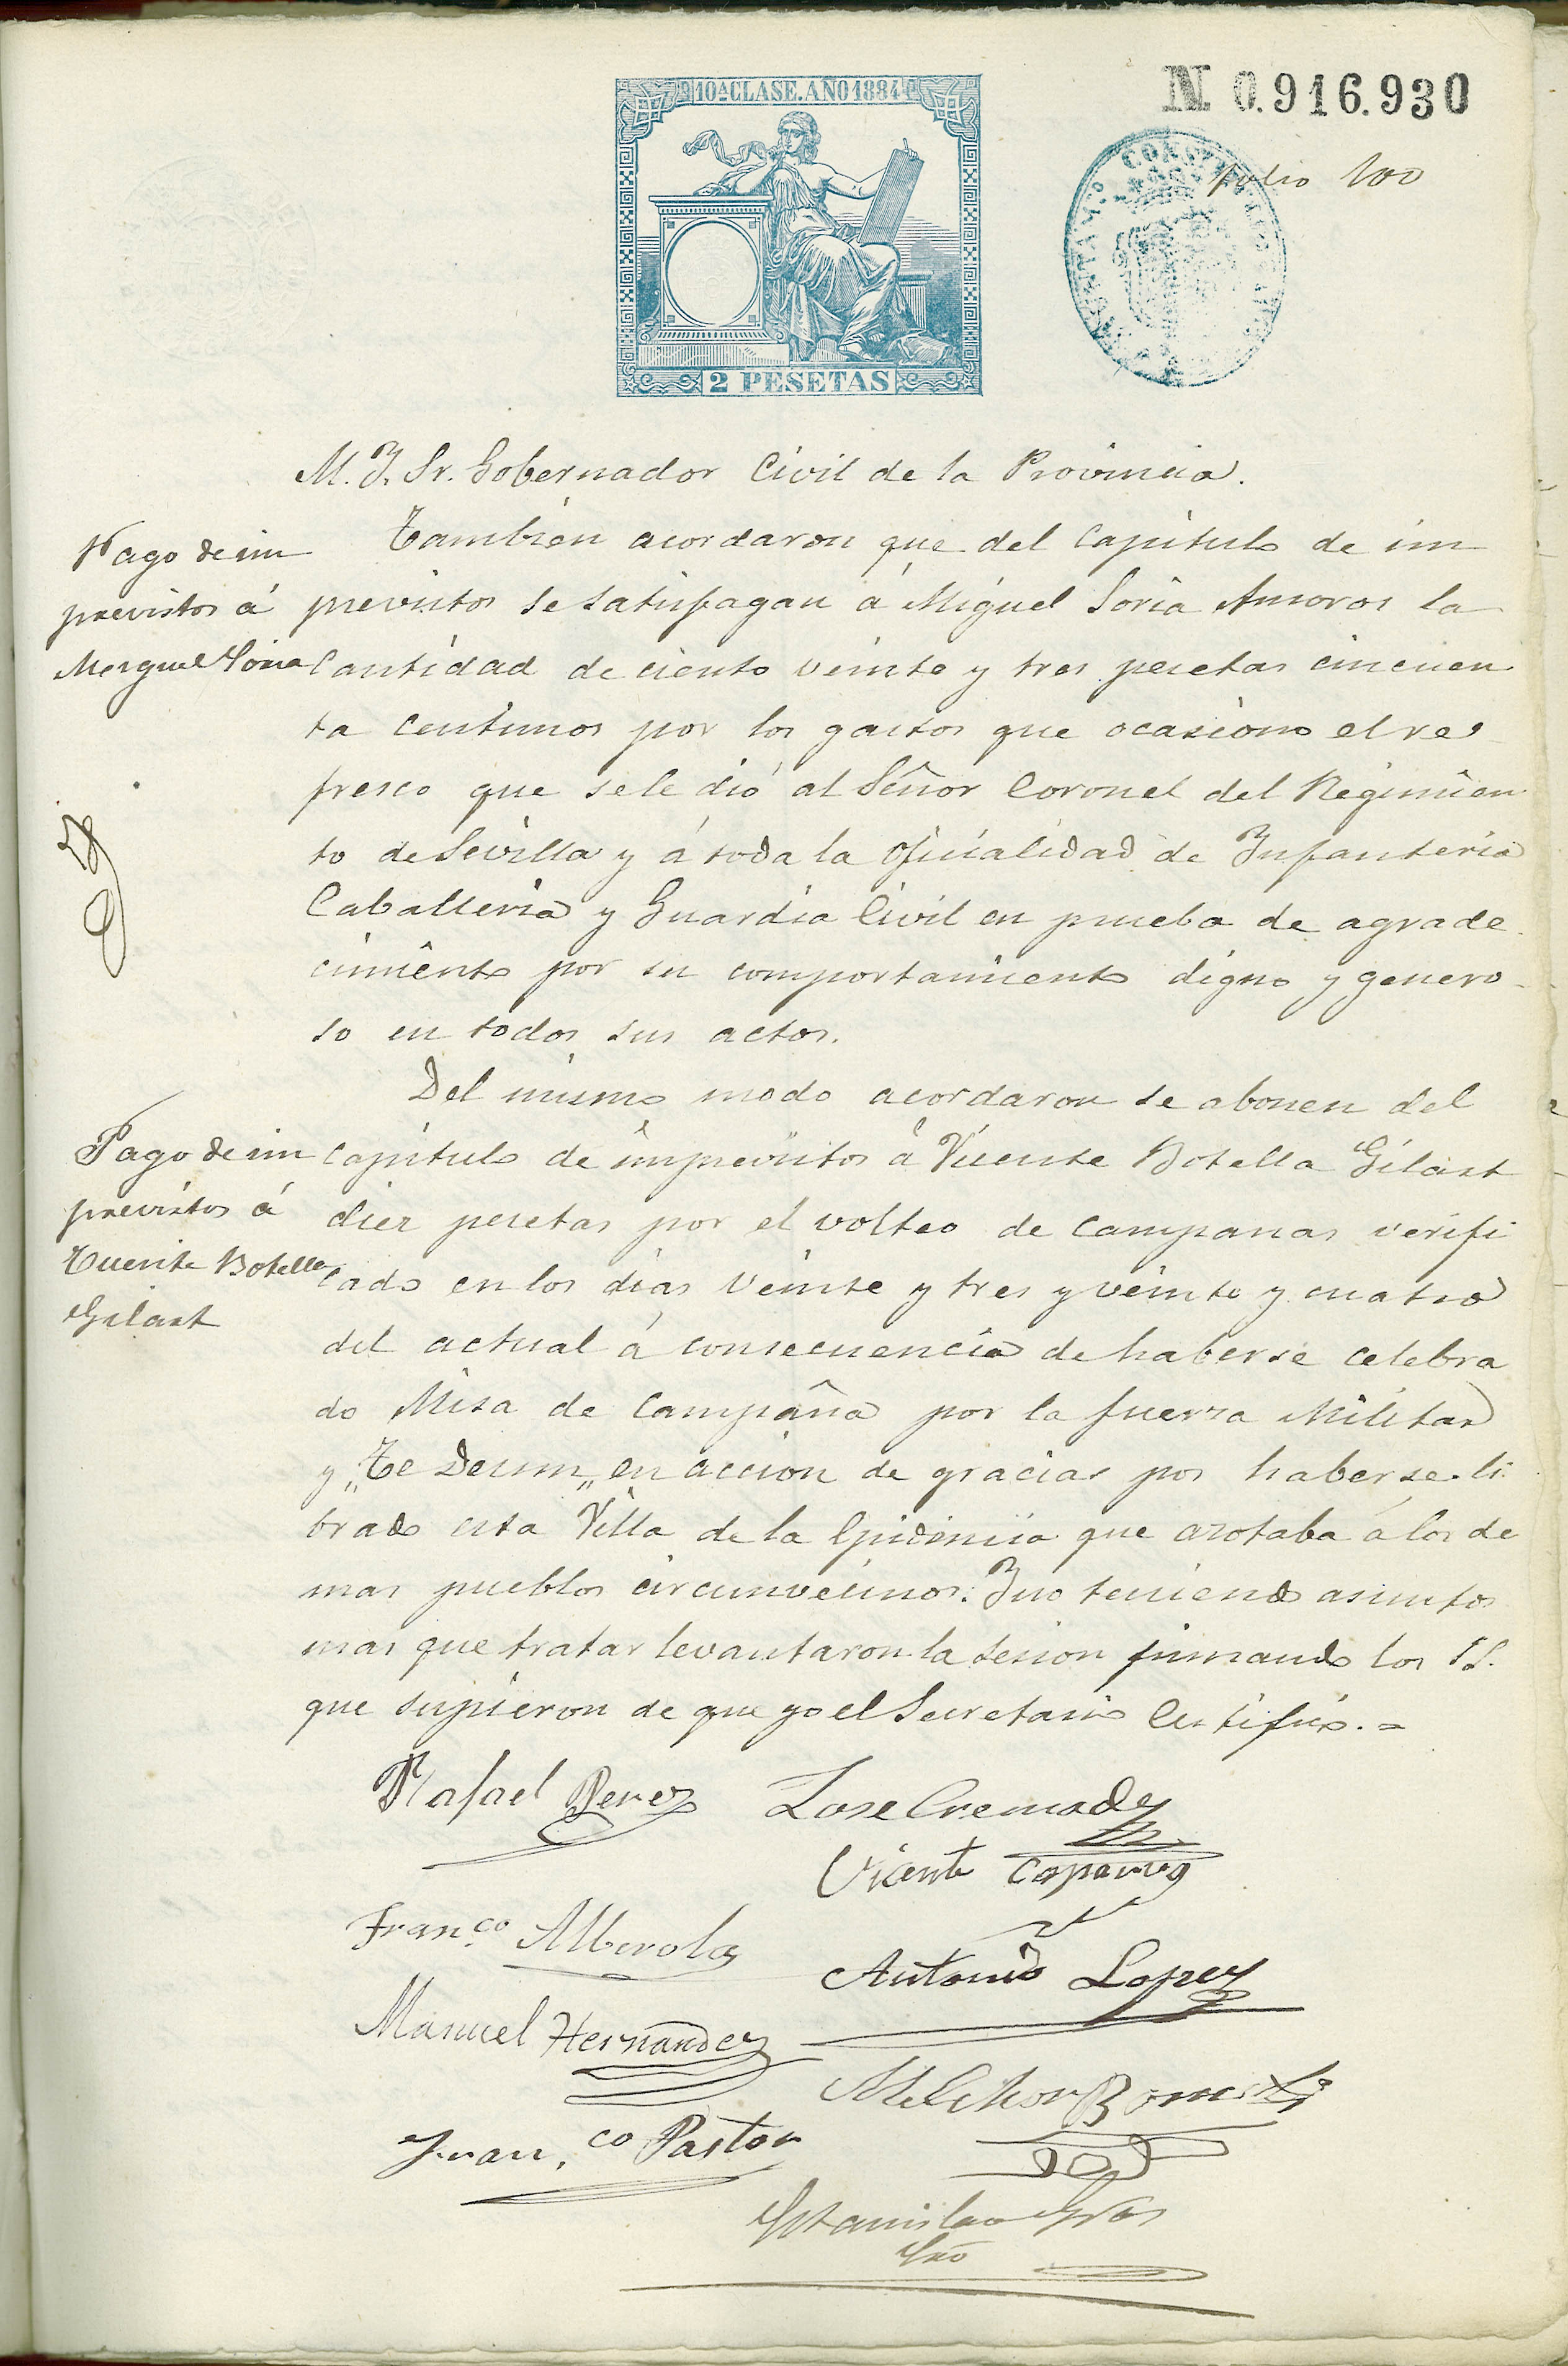 10ª CLASE. AÑO 1884
N. 0.916.930
folio 100
2 PESETAS
M. Y. Sr. Gobernador Civil de la Provincia.
Pago de im
previstos á
Miguel Soria
Tambien acordaron que del Capitulo de im
previstos se satisfagan á Miguel Soria Amoros la
Cantidad de ciento veinte y tres pesetas cincuen
ta centimos por los gastos que ocasiono el re-
fresco que se le dió al Señor Coronel del Regimien
to de Sevilla y á toda la oficialidad de Infanteria
Caballeria y Guardia Civil en prueba de agrade
cimiento por su comportamiento digno y genero-
so en todos sus actos.
Pago de im
previstos á
Vicente Botella
Gilart
Del mismo modo acordaron se abonen del
Capitulo de imprevistos á Vicente Botella Gilart
diez pesetas por el volteo de campanas verifi
cado en los dias veinte y tres y veinte y cuatro
del actual á consecuencia de haberse celebra
do Misa de Campaña por la fuerza Militar
y „Te Deum„ en accion de gracias por haberse li
brado esta Villa de la Epidemia que azotaba á los de
mas pueblos circunvecinos. Y no teniendo asuntos
mas que tratar levantaron la sesion firmando los SS.
que supieron de que yo el Secretario Certifico. =
Rafael Perez
Jose Cremades
Vicente
Franco Alberola
Antonio Lopez
Manuel Hernandez
Melchor
Fran.co Pastor
Estanislao
Srio